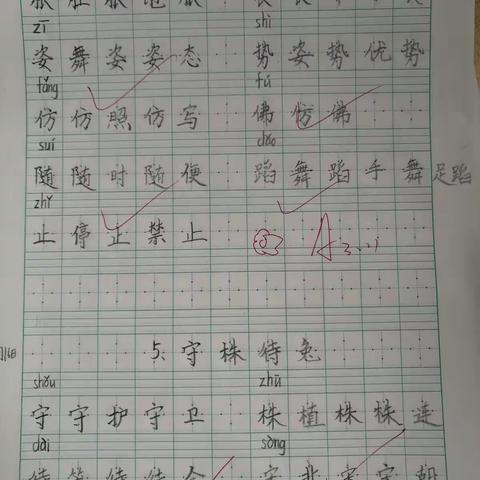 zī shì
姿 舞 姿 姿 态 势 姿 势 优 势
fǎng fú
仿 仿 照 仿 写 佛 仿 佛
suí dǎo
随 随 时 随 便 蹈 舞 蹈 手 舞 足蹈
zhǐ
止 停 止 禁 止 A
5、守 株 待 兔
shǒu zhū
守 守 护 守 卫 株 植 株 株 连
dài sòng
待 等 待 待 命 宋 北 宋 宋 朝